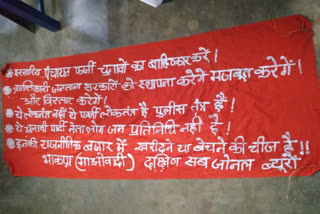 त्रिस्तरीय पंचायत फर्जी चुनावों का बहिष्कार करें।
क्रांतिकारी जनताना सरकारों की स्थापना करेंगे मजबूत करेंगे।
और विस्तार करेंगे।
ये लोकतंत्र नहीं ये फर्जी लोकतंत्र है पुलीस तंत्र है।
ये चुनावी पार्टी नेता लोग जन प्रतिनिधि नहीं है।
इनकी राजनीतिक बाजार में खरीदने या बेचने की चीज है!!
भाकपा (माओवादी) दक्षिण सब जोनल ब्यूरो